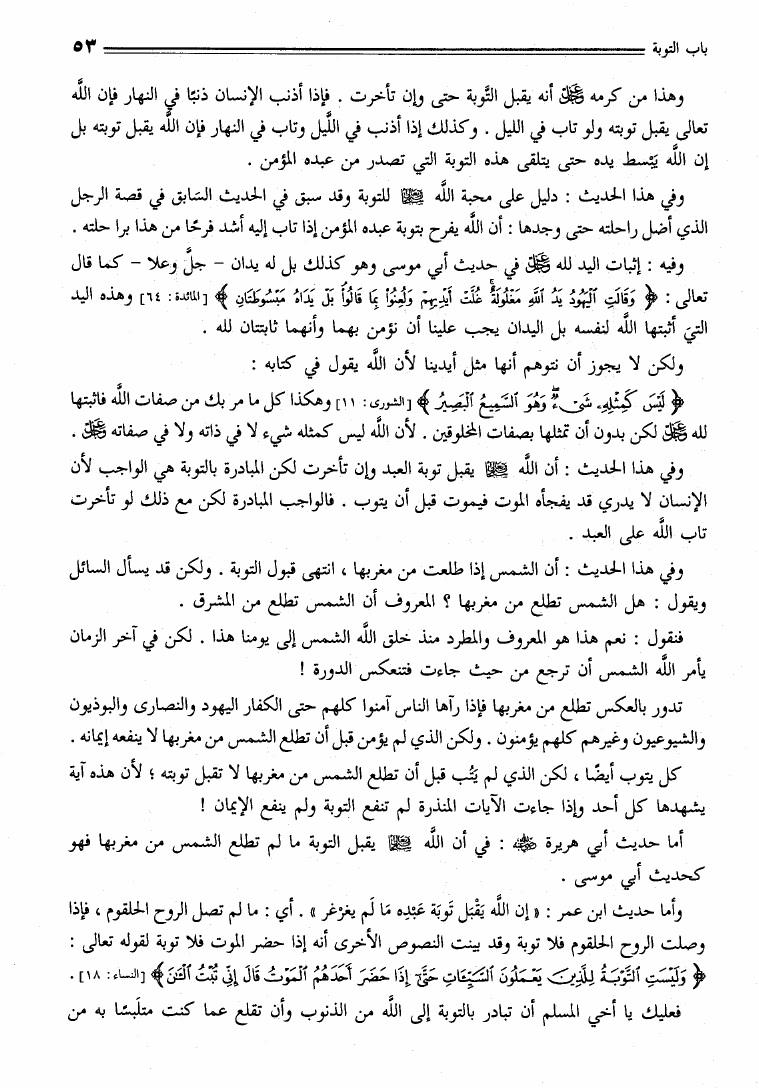 باب التوبة ٥٣
وهذا من كرمه ﷻ أنه يقبل التَّوبة حتى وإن تأخرت . فإذا أذنب الإنسان ذنبًا في النهار فإن اللَّه
تعالى يقبل توبته ولو تاب في الليل . وكذلك إذا أذنب في اللَّيل وتاب في النهار فإن اللَّه يقبل توبته بل
إن اللَّه يَبْسط يده حتى يتلقى هذه التوبة التي تصدر من عبده المؤمن .
وفي هذا الحديث : دليل على محبة اللَّه ﷻ للتوبة وقد سبق في الحديث السَابق في قصة الرجل
الذي أضل راحلته حتى وجدها : أن اللَّه يفرح بتوبة عبده المؤمن إذا تاب إليه أشد فرحًا من هذا برا حلته .
وفيه : إثبات اليد لله ﷻ في حديث أبي موسى وهو كذلك بل له يدان – جلَّ وعلا – كما قال
تعالى : ﴿ وَقَالَتِ ٱلْيَهُودُ يَدُ ٱللَّهِ مَغْلُولَةٌ غُلَّتْ أَيْدِيهِمْ وَلُعِنُوا۟ بِمَا قَالُوا۟ بَلْ يَدَاهُ مَبْسُوطَتَانِ ﴾ [المائدة : ٦٤] وهذه اليد
التي أثبتها اللَّه لنفسه بل اليدان يجب علينا أن نؤمن بهما وأنهما ثابتتان لله .
ولكن لا يجوز أن نتوهم أنها مثل أيدينا لأن اللَّه يقول في كتابه :
﴿ لَيْسَ كَمِثْلِهِۦ شَىْءٌ وَهُوَ ٱلسَّمِيعُ ٱلْبَصِيرُ ﴾ [الشورى : ١١] وهكذا كل ما مر بك من صفات اللَّه فاثبتها
لله ﷻ لكن بدون أن تمثلها بصفات المخلوقين . لأن اللَّه ليس كمثله شيء لا في ذاته ولا في صفاته ﷻ .
وفي هذا الحديث : أن اللَّه ﷻ يقبل توبة العبد وإن تأخرت لكن المبادرة بالتوبة هي الواجب لأن
الإنسان لا يدري قد يفجأه الموت فيموت قبل أن يتوب . فالواجب المبادرة لكن مع ذلك لو تأخرت
تاب اللَّه على العبد .
وفي هذا الحديث : أن الشمس إذا طلعت من مغربها ، انتهى قبول التوبة . ولكن قد يسأل السائل
ويقول : هل الشمس تطلع من مغربها ؟ المعروف أن الشمس تطلع من المشرق .
فنقول : نعم هذا هو المعروف والمطرد منذ خلق اللَّه الشمس إلى يومنا هذا . لكن في آخر الزمان
يأمر اللَّه الشمس أن ترجع من حيث جاءت فتنعكس الدورة !
تدور بالعكس تطلع من مغربها فإذا رآها الناس آمنوا كلهم حتى الكفار اليهود والنصارى والبوذيون
والشيوعيون وغيرهم كلهم يؤمنون . ولكن الذي لم يؤمن قبل أن تطلع الشمس من مغربها لا ينفعه إيمانه .
كل يتوب أيضًا ، لكن الذي لم يَتُب قبل أن تطلع الشمس من مغربها لا تقبل توبته ؛ لأن هذه آية
يشهدها كل أحد وإذا جاءت الآيات المنذرة لم تنفع التوبة ولم ينفع الإيمان !
أما حديث أبي هريرة ﵁ : في أن اللَّه ﷻ يقبل التوبة ما لم تطلع الشمس من مغربها فهو
كحديث أبي موسى .
وأما حديث ابن عمر : « إن اللَّه يَقْبَل تَوبَة عَبْدِه مَا لَم يغرْغر » . أي : ما لم تصل الروح الحلقوم ، فإذا
وصلت الروح الحلقوم فلا توبة وقد بينت النصوص الأخرى أنه إذا حضر الموت فلا توبة لقوله تعالى :
﴿ وَلَيْسَتِ ٱلتَّوْبَةُ لِلَّذِينَ يَعْمَلُونَ ٱلسَّيِّـَٔاتِ حَتَّىٰٓ إِذَا حَضَرَ أَحَدَهُمُ ٱلْمَوْتُ قَالَ إِنِّى تُبْتُ ٱلْـَٰٔنَ ﴾ [النساء : ١٨] .
فعليك يا أخي المسلم أن تبادر بالتوبة إلى اللَّه من الذنوب وأن تقلع عما كنت متلَبسًا به من